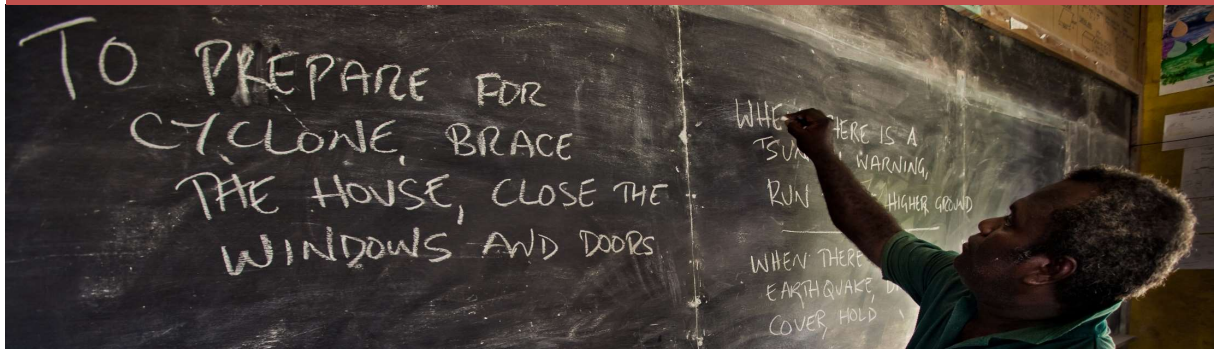 TO PREPARE FOR
CYCLONE, BRACE
THE HOUSE, CLOSE THE
WINDOWS AND DOORS
IS A
WARNING,
RUN HIGHER GROUND
WHEN THERE
EARTHQUAKE,
COVER, HOLD